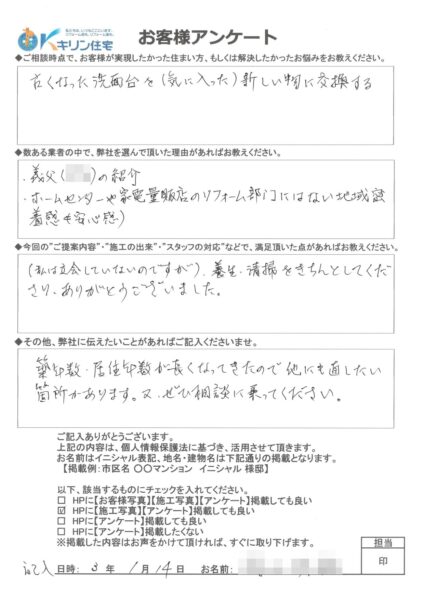 私たちは、いつもここにいます。
キリン住宅
お客様アンケート
◆ご相談時点で、お客様が実現したかった住まい方、もしくは解決したかったお悩みをお教えください。
古くなった洗面台を(気に入った)新しい物に交換する
◆数ある業者の中で、弊社を選んで頂いた理由があればお教えください。
・義父( )の紹介
・ホームセンターや家電量販店のリフォーム部門にはない地域密
着感(安心感)
◆今回の"ご提案内容"・"施工の出来"・"スタッフの対応"などで、満足頂いた点があればお教えください。
(私は立会していないのですが)、養生・清掃をきちんとしてくだ
さり、ありがとうございました。
◆その他、弊社に伝えたいことがあればご記入くださいませ。
築年数・居住年数が長くなってきたので他にも直したい
箇所があります。又、ぜひ相談に乗ってください。
ご記入ありがとうございます。
上記の内容は、個人情報保護法に基づき、活用させて頂きます。
お名前はイニシャル表記、地名・建物名は下記通りの掲載となります。
【掲載例:市区名 〇〇マンション イニシャル 様邸】
以下、該当するものにチェックを入れてください。
□ HPに【お客様写真】【施工写真】【アンケート】掲載しても良い
☑ HPに【施工写真】【アンケート】掲載しても良い
□ HPに【アンケート】掲載しても良い
□ HPに【アンケート】掲載したくない
※掲載した内容はお声をかけて頂ければ、すぐに取り下げます。
担当
印
記入日時: 3 年 1 月 14 日 お名前: